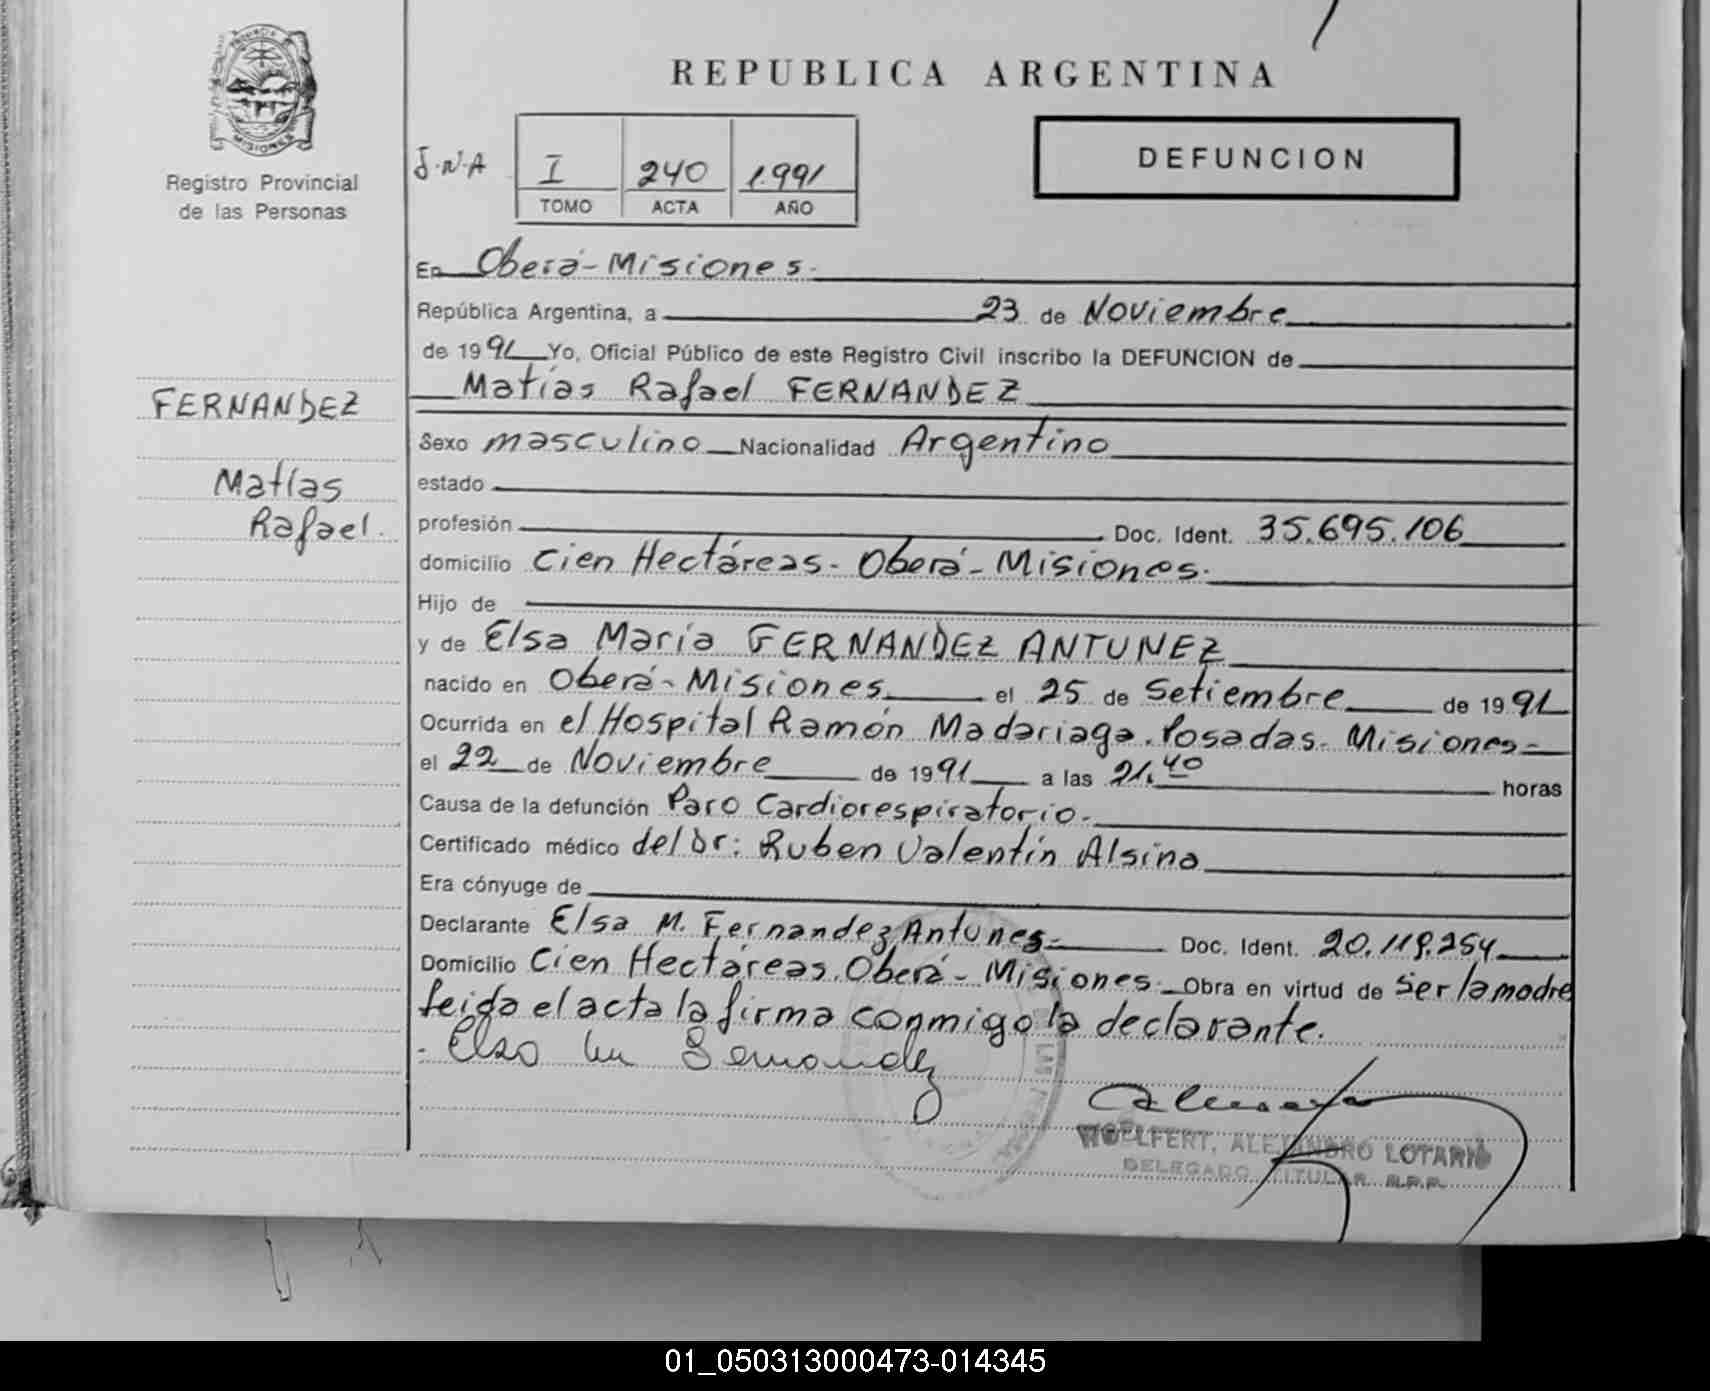 REPUBLICA ARGENTINA
PROVINCIA
MISIONES
Registro Provincial
de las Personas
J.N.A
I 240 1.991
TOMO ACTA AÑO
DEFUNCION
En Oberá-Misiones.
República Argentina, a 23 de Noviembre
de 1991 Yo, Oficial Público de este Registro Civil inscribo la DEFUNCION de
Matías Rafael FERNANDEZ
FERNANDEZ
Matías
Rafael.
Sexo masculino Nacionalidad Argentino
estado
profesión Doc. Ident. 35.695.106
domicilio Cien Hectáreas. Oberá-Misiones.
Hijo de
y de Elsa María FERNANDEZ ANTUNEZ
nacido en Oberá-Misiones el 25 de Setiembre de 1991
Ocurrida en el Hospital Ramón Madariaga. Posadas. Misiones
el 22 de Noviembre de 1991 a las 21.40 horas
Causa de la defunción Paro Cardiorespiratorio.
Certificado médico del Dr: Ruben Valentín Alsina
Era cónyuge de
Declarante Elsa M. Fernandez Antunes Doc. Ident. 20.119.254
Domicilio Cien Hectáreas. Oberá-Misiones. Obra en virtud de Ser la madre
leida el acta la firma conmigo la declarante.
Elsa M Fernandez
WOELFERT, ALEJANDRO LOTARIO
DELEGADO TITULAR R.P.P.
01_050313000473-014345